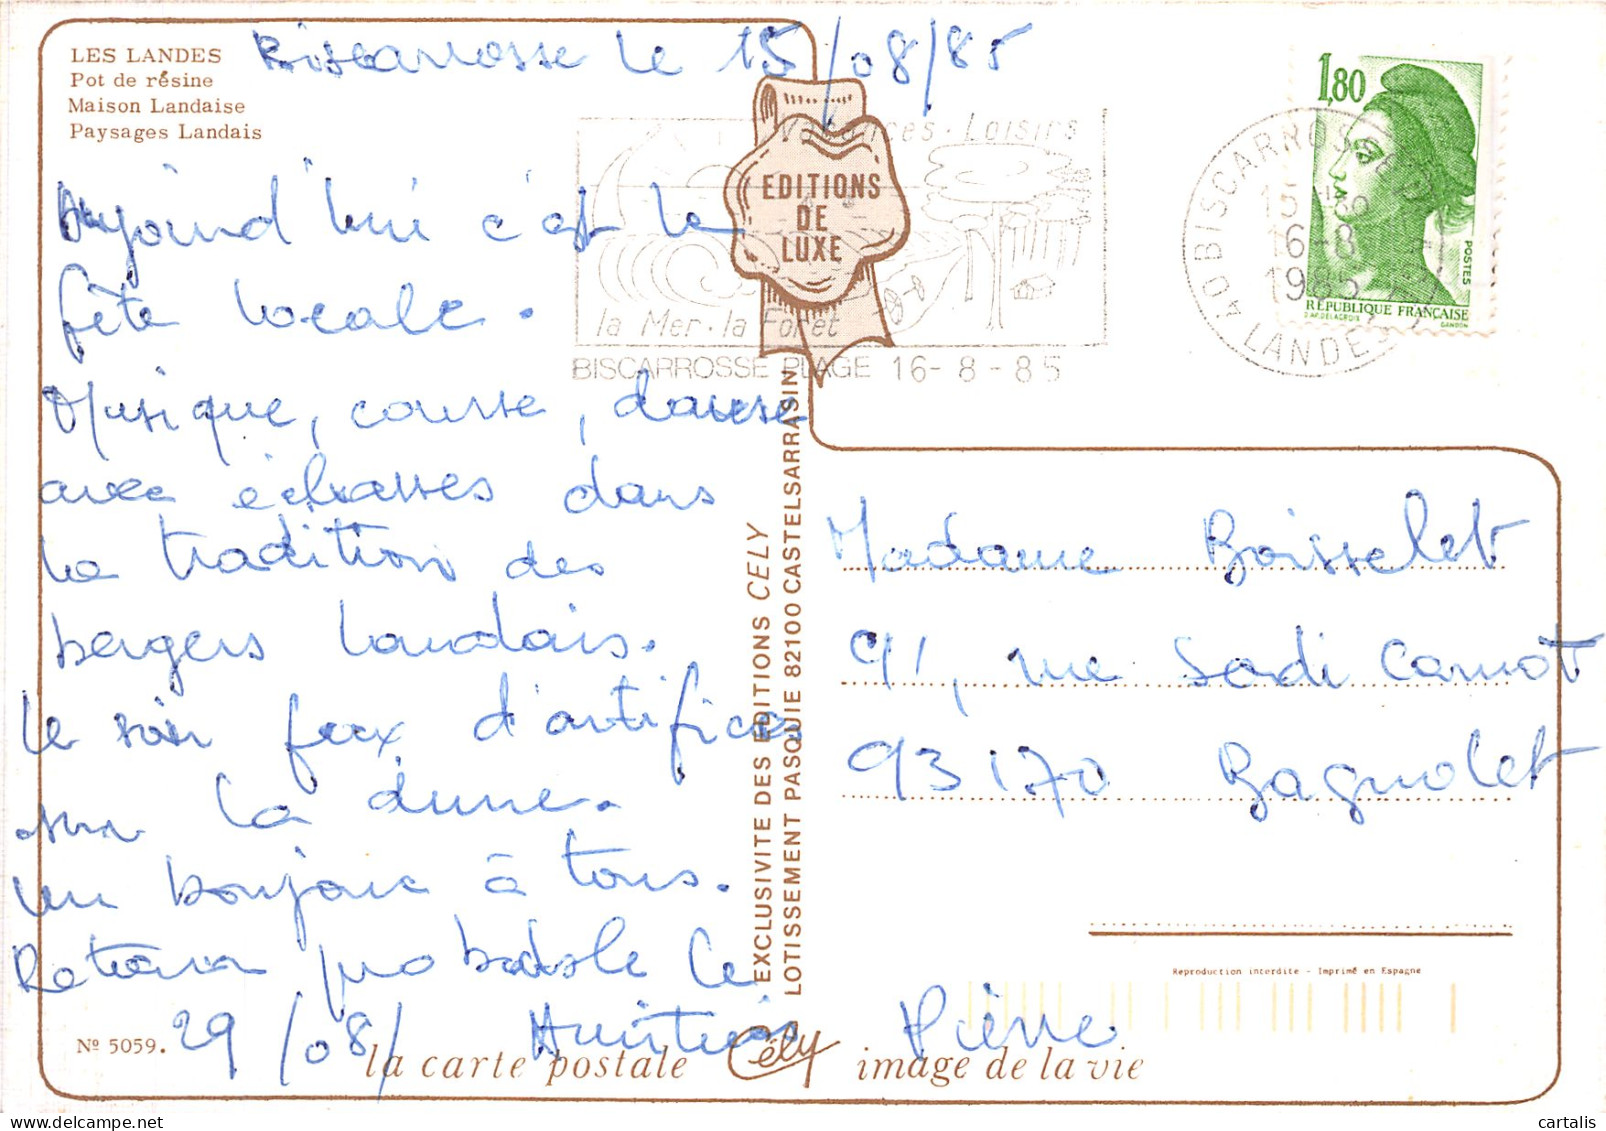 LES LANDES
Pot de résine
Maison Landaise
Paysages Landais
Biscarrosse le 15/08/85
Aujourd'hui c'est la
fête locale.
Musique, course, danse
avec échasses dans
la tradition des
bergers landais.
Le soir feux d'artifices
sur la dune.
Un bonjour à tous.
Retour probable le
29/08/ Amitiés Pierre
Nº 5059.
EDITIONS
DE
LUXE
Vacances . Loisirs
la Mer . la Forêt
BISCARROSSE PLAGE 16-8-85
40 BISCARROSSE
16-8
1985
LANDES
1,80
POSTES
RÉPUBLIQUE FRANÇAISE
D'AP. DELACROIX GANDON
EXCLUSIVITE DES EDITIONS CELY
LOTISSEMENT PASQUIE 82100 CASTELSARRASIN
Madame Boisselet
91, rue Sadi Carnot
93170 Bagnolet
Reproduction interdite - Imprimé en Espagne
la carte postale Cély image de la vie
cartalis